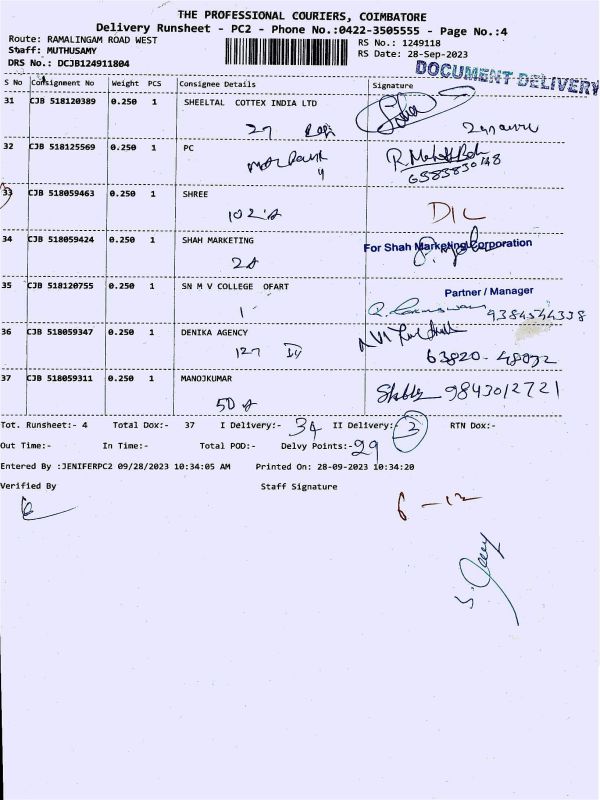 THE PROFESSIONAL COURIERS, COIMBATORE
Delivery Runsheet - PC2 - Phone No.:0422-3505555 - Page No.:4
Route: RAMALINGAM ROAD WEST
RS No.: 1249118
Staff: MUTHUSAMY
RS Date: 28-Sep-2023
DRS No.: DCJB124911804
DOCUMENT DELIVERY
S No Consignment No Weight PCS Consignee Details Signature
31 CJB 518120389 0.250 1 SHEELTAL COTTEX INDIA LTD
27
32 CJB 518125569 0.250 1 PC
6383830148
33 CJB 518059463 0.250 1 SHREE
102
D/L
34 CJB 518059424 0.250 1 SHAH MARKETING
For Shah Marketing Corporation
35 CJB 518120755 0.250 1 SN M V COLLEGE OFART
Partner / Manager
1
9384544338
36 CJB 518059347 0.250 1 DENIKA AGENCY
127
63820-48032
37 CJB 518059311 0.250 1 MANOJKUMAR
50
9843012721
Tot. Runsheet:- 4 Total Dox:- 37 I Delivery:- 34 II Delivery:- 3 RTN Dox:-
Out Time:- In Time:- Total POD:- Delvy Points:- 29
Entered By :JENIFERPC2 09/28/2023 10:34:05 AM Printed On: 28-09-2023 10:34:20
Verified By Staff Signature
6-12